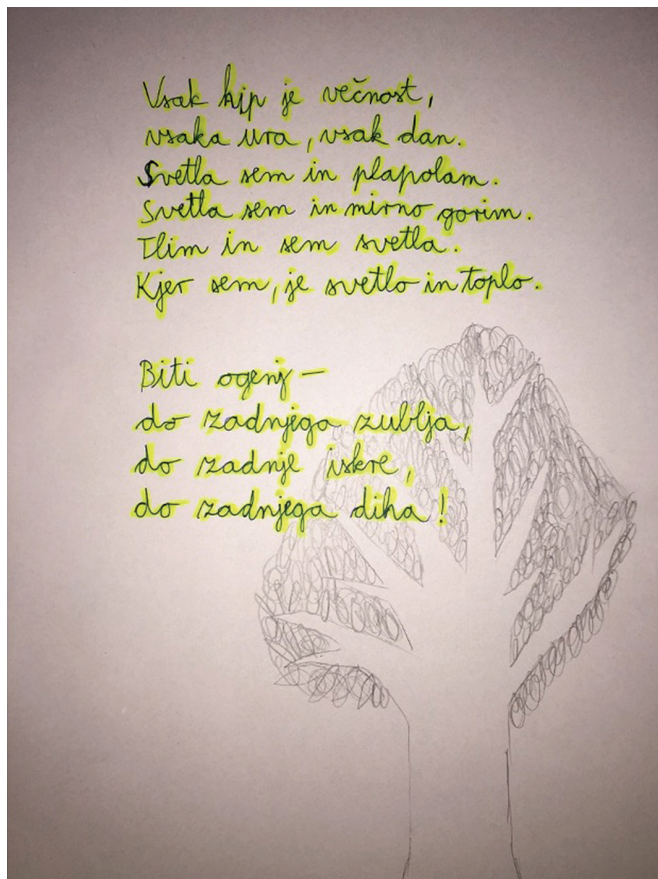 Vsak hip je večnost,
vsaka ura, vsak dan.
Svetla sem in plapolam.
Svetla sem in mirno gorim.
Tlim in sem svetla.
Kjer sem, je svetlo in toplo.
Biti ogenj –
do zadnjega zublja,
do zadnje iskre,
do zadnjega diha!